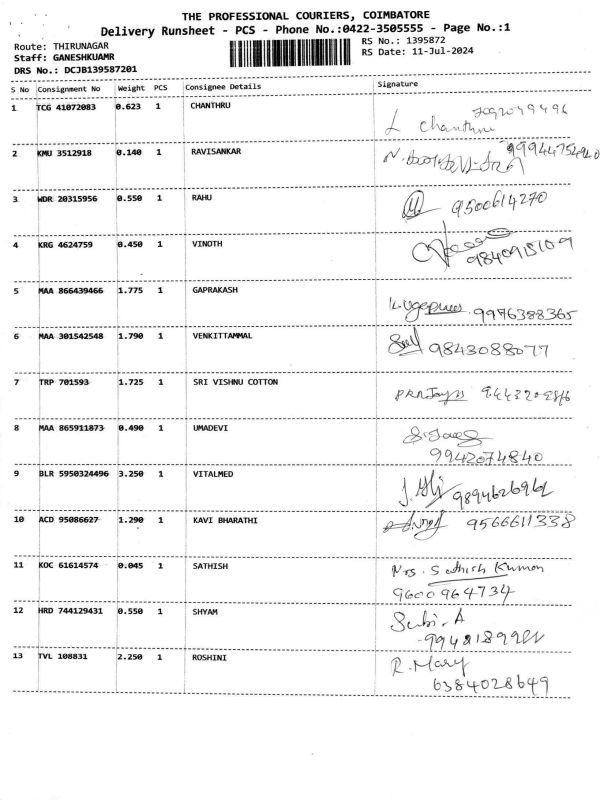 THE PROFESSIONAL COURIERS, COIMBATORE
Delivery Runsheet - PCS - Phone No.:0422-3505555 - Page No.:1
Route: THIRUNAGAR
RS No.: 1395872
Staff: GANESHKUAMR
RS Date: 11-Jul-2024
DRS No.: DCJB139587201
S No Consignment No Weight PCS Consignee Details Signature
1 TCG 41072083 0.623 1 CHANTHRU
L Chanthru
2 KMU 3512918 0.140 1 RAVISANKAR
3 WDR 20315956 0.550 1 RAHU
9500614270
4 KRG 4624759 0.450 1 VINOTH
9840915109
5 MAA 866439466 1.775 1 GAPRAKASH
9976388365
6 MAA 301542548 1.790 1 VENKITTAMMAL
9843088077
7 TRP 701593 1.725 1 SRI VISHNU COTTON
8 MAA 865911873 0.490 1 UMADEVI
9942074840
9 BLR 5950324496 3.250 1 VITALMED
10 ACD 95086627 1.290 1 KAVI BHARATHI
9566611338
11 KOC 61614574 0.045 1 SATHISH
Mrs. Sathish Kumar
9600964734
12 HRD 744129431 0.550 1 SHYAM
13 TVL 108831 2.250 1 ROSHINI
R. Mary
6384028649